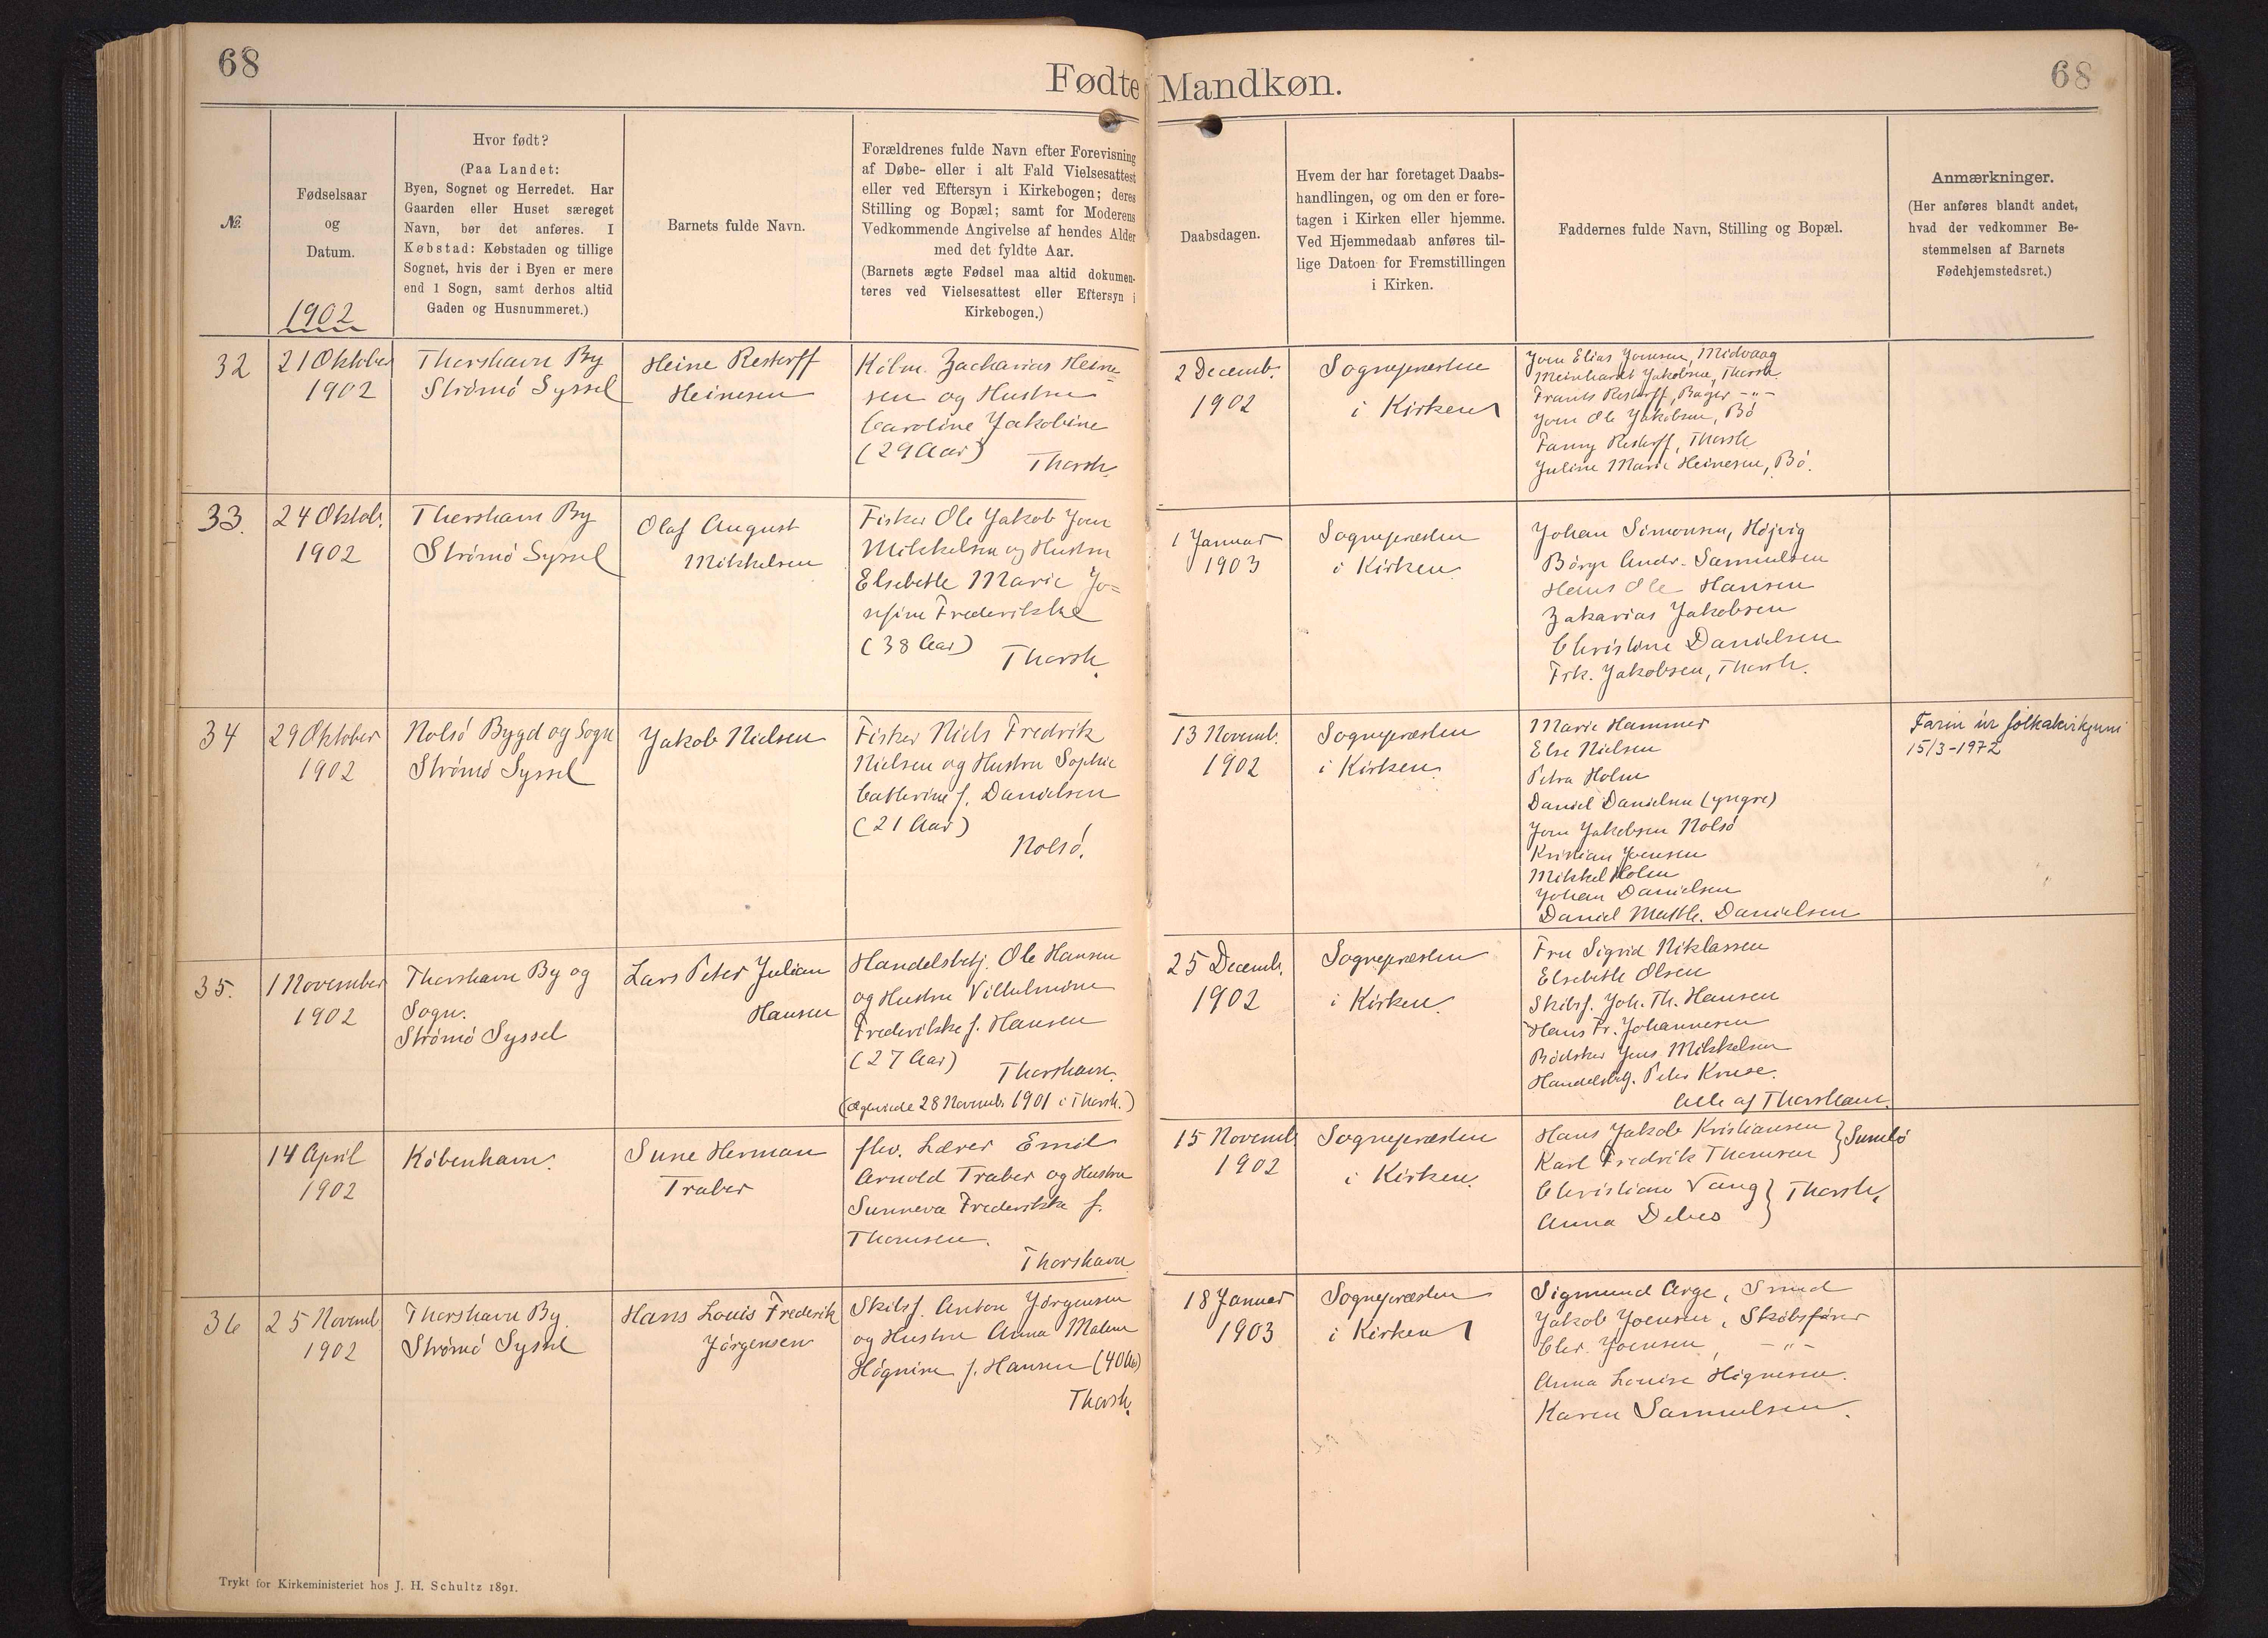 68
Fødte Mandkøn.
68
№
Fødselsaar
og
Datum.
1902
Hvor født?
(Paa Landet:
Byen, Sognet og Herredet. Har
Gaarden eller Huset særeget
Navn, bør det anføres. I
Købstad: Købstaden og tillige
Sognet, hvis der i Byen er mere
end 1 Sogn, samt derhos altid
Gaden og Husnummeret.)
Barnets fulde Navn.
Forældrenes fulde Navn efter Forevisning
af Døbe- eller i alt Fald Vielsesattest
eller ved Eftersyn i Kirkebogen; deres
Stilling og Bopæl; samt for Moderens
Vedkommende Angivelse af hendes Alder
med det fyldte Aar.
(Barnets ægte Fødsel maa altid dokumen-
teres ved Vielsesattest eller Eftersyn i
Kirkebogen.)
Daabsdagen.
Hvem der har foretaget Daabs-
handlingen, og om den er fore-
tagen i Kirken eller hjemme.
Ved Hjemmedaab anføres til-
lige Datoen for Fremstillingen
i Kirken.
Faddernes fulde Navn, Stilling og Bopæl.
Anmærkninger.
(Her anføres blandt andet,
hvad der vedkommer Be-
stemmelsen af Barnets
Fødehjemstedsret.)
32
21 Oktober
1902
Thorshavn By
Strømø Syssel
Heine Restorff
Heinesen
Købm. Zacharias Heine=
sen og Hustru
Caroline Jakobine
(29 Aar)
Thorsh.
2 Decemb.
1902
Sognepræsten
i Kirken
Joen Elias Joensen, Midvaag
Meinhardt Jakobsen, Thorsh.
Frants Restorff, Bager -"-
Joen Ole Jakobsen, Bø
Fanny Restorff, Thorsh
Juline Marie Heinesen, Bø.
33.
24 Oktob.
1902
Thorshavn By
Strømø Syssel
Olaf August
Mikkelsen
Fisker Ole Jakob Joen
Mikkelsen og Hustru
Elsebeth Marie Jo=
sefine Frederikke
(38 Aar)
Thorsh.
1 Januar
1903
Sognepræsten
i Kirken
Johan Simonsen, Højvig
Börge Andr. Samuelsen
Hans Ole Hansen
Zakarias Jakobsen
Christine Danielsen
Frk. Jakobsen, Thorsh.
34
29 Oktober
1902
Nolsø Bygd og Sogn
Strømø Syssel
Jakob Nielsen
Fisker Niels Fredrik
Nielsen og Hustru Sophie
Cathrine f. Danielsen
(21 Aar)
Nolsø.
13 Novemb.
1902
Sognepræsten
i Kirken.
Marie Hammer
Else Nielsen
Petra Holm
Daniel Danielsen (yngre)
Joen Jakobsen Nolsø
Kristian Joensen
Mikkel Holm
Johan Danielsen
Daniel Matth. Danielsen
Farin úr fólkakirkjuni
15/3-1972
35.
1 November
1902
Thorshavn By og
Sogn.
Strømø Syssel
Lars Peter Julian
Hansen
Handelsbetj. Ole Hansen
og Hustru Vilhelmine
Frederikke f. Hansen
(27 Aar)
Thorshavn.
(Ægteviede 28 Novemb. 1901 i Thorsh.)
25 Decemb.
1902
Sognepræsten
i Kirken.
Fru Sigrid Niklassen
Elsebeth Olsen
Skibsf. Joh. Th. Hansen
Hans Fr. Johannesen
Bødsker Jens Mikkelsen
Handelsbetj. Peter Kruse.
Alle af Thorshavn.
14 April
1902
København.
Sune Herman
Traber
fhv. Lærer Emil
Arnold Traber og Hustru
Sunneva Frederikka f.
Thomsen.
Thorshavn
15 Novemb
1902
Sognepræsten
i Kirken.
Hans Jakob Kristiansen
Karl Fredrik Thomsen } Sumbø
Christiane Vang
Anna Debes } Thorsh.
36
25 Novemb
1902
Thorshavn By.
Strømø Syssel
Hans Louis Frederik
Jørgensen
Skibsf. Anton Jørgensen
og Hustru Anna Malene
Høgnine f. Hansen (40 Aar)
Thorsh.
18 Januar
1903
Sognepræsten
i Kirken
Sigmund Arge, Smed
Jakob Joensen, Skibsfører
Chr. Joensen, -"-
Anna Louise Høgnesen.
Karen Samuelsen.
Trykt for Kirkeministeriet hos J. H. Schultz 1891.